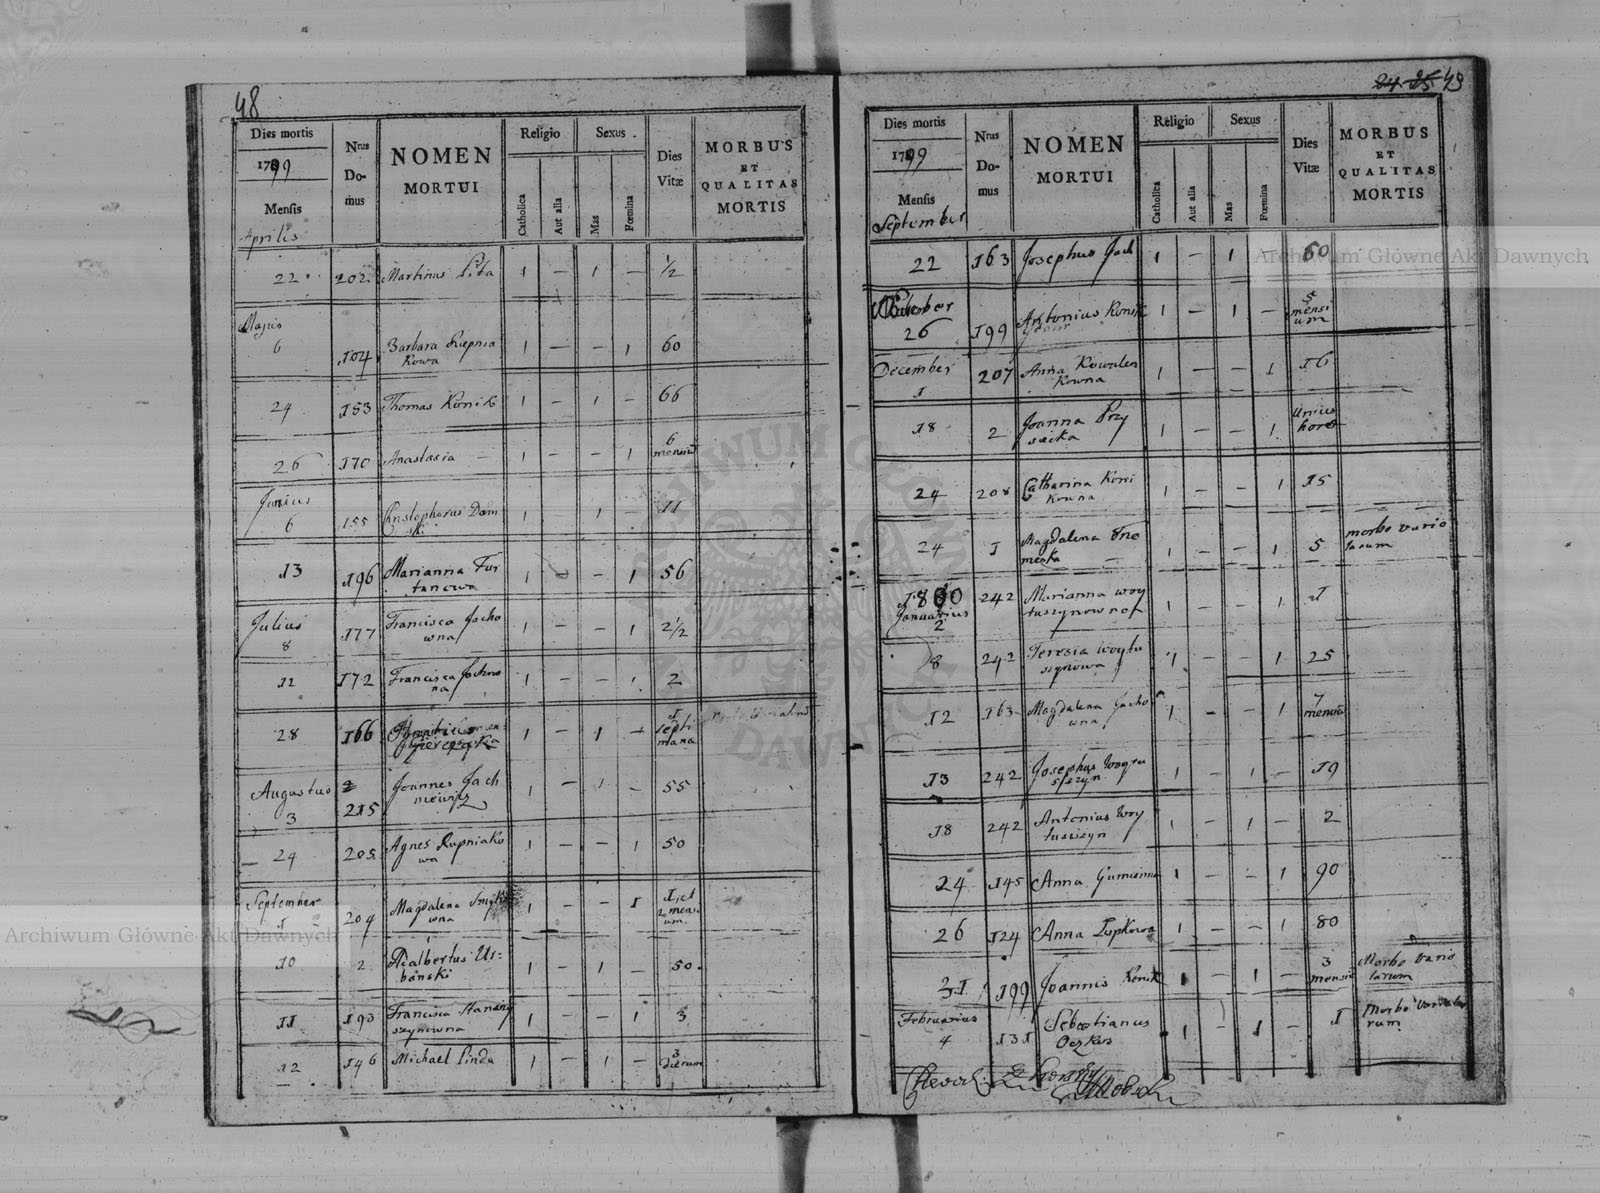 48
Dies mortis | Nrus Do- mus | NOMEN MORTUI | Religio | Sexus | Dies Vitæ | MORBUS ET QUALITAS MORTIS
1799
Mensis | Catholica | Aut alia | Mas | Fœmina
Aprilis
22 | 202 | Martinus | 1 | – | 1 | – | 1/2
Majus
6 | 104 | Barbara Rzepnia
kowa | 1 | – | – | 1 | 60
24 | 153 | Thomas Konik | 1 | – | 1 | – | 66
26 | 170 | Anastasia – | 1 | – | – | 1 | 6
mensiu
Junius
6 | 155 | Christophorus Dom
ski | 1 | 1 | – | 11
13 | 196 | Marianna Fur
tanowa | 1 | – | 1 | 56
Julius
8 | 177 | Francisca Jacho
wna | 1 | – | – | 1 | 2 1/2
12 | 172 | Francisca Jachow
na | 1 | – | – | 1 | 2
28 | 166 | 1 | – | 1 | – | 1
septi
mana
Augustus
3 | 215 | Joannes Jach
niewicz | 1 | – | 1 | – | 55
24 | 205 | Agnes Rupniako
wa | 1 | – | – | 1 | 50
September
1 | 204 | Magdalena Smyko
wna | 1 | – | – | 1 | 1 et
2 mensi
um
10 | 2 | Adalbertus Ur-
banski | 1 | – | 1 | – | 50
11 | 193 | Francisca
szynowna | 1 | – | – | 1 | 3
12 | 146 | Michael Linda | 1 | – | 1 | – | 3
dierum
24 25 49
Dies mortis | Nrus Do- mus | NOMEN MORTUI | Religio | Sexus | Dies Vitæ | MORBUS ET QUALITAS MORTIS
1799
Mensis | Catholica | Aut alia | Mas | Fœmina
September
22 | 163 | Josephus Jach | 1 | – | 1 | 60
26 | 199 | Antonius Konik | 1 | – | 1 | – | 5
mensi
um
December
1 | 207 | Anna Kowalew
kowna | 1 | – | – | 1 | 16
18 | 2 | Joanna Przy
siecka | 1 | – | – | 1 | Unius
hora
24 | 208 | Catharina Koni
kowna | 1 | – | – | 1 | 15
24 | 1 | Magdalena
meska | 1 | – | – | 1 | 5 | morbo vario
larum
1800
Januarius
2 | 242 | Marianna Woy
tuszynowna | 1 | – | – | 1 | 1
8 | 242 | Teresia Woytu
szynowa | 1 | – | – | 1 | 25
12 | 163 | Magdalena Jacho
wna | 1 | – | – | 1 | 7
mensiu
13 | 242 | Josephus Woytu
szszyn | 1 | – | 1 | – | 19
18 | 242 | Antonius Woy
tuszszyn | 1 | – | 1 | – | 2
24 | 145 | Anna | 1 | – | – | 1 | 90
26 | 124 | Anna Lupkowa | 1 | – | – | 1 | 80
31 | 199 | Joannis Konik | 1 | – | 1 | – | 3
mensiu | Morbo vario
larum
Februarius
4 | 131 | Sebastianus
Oczkos | 1 | – | 1 | – | 1 | Morbo variola
rum
Archiwum Główne Akt Dawnych
Archiwum Główne Akt Dawnych
ARCHIWUM GŁÓWNE AKT DAWNYCH